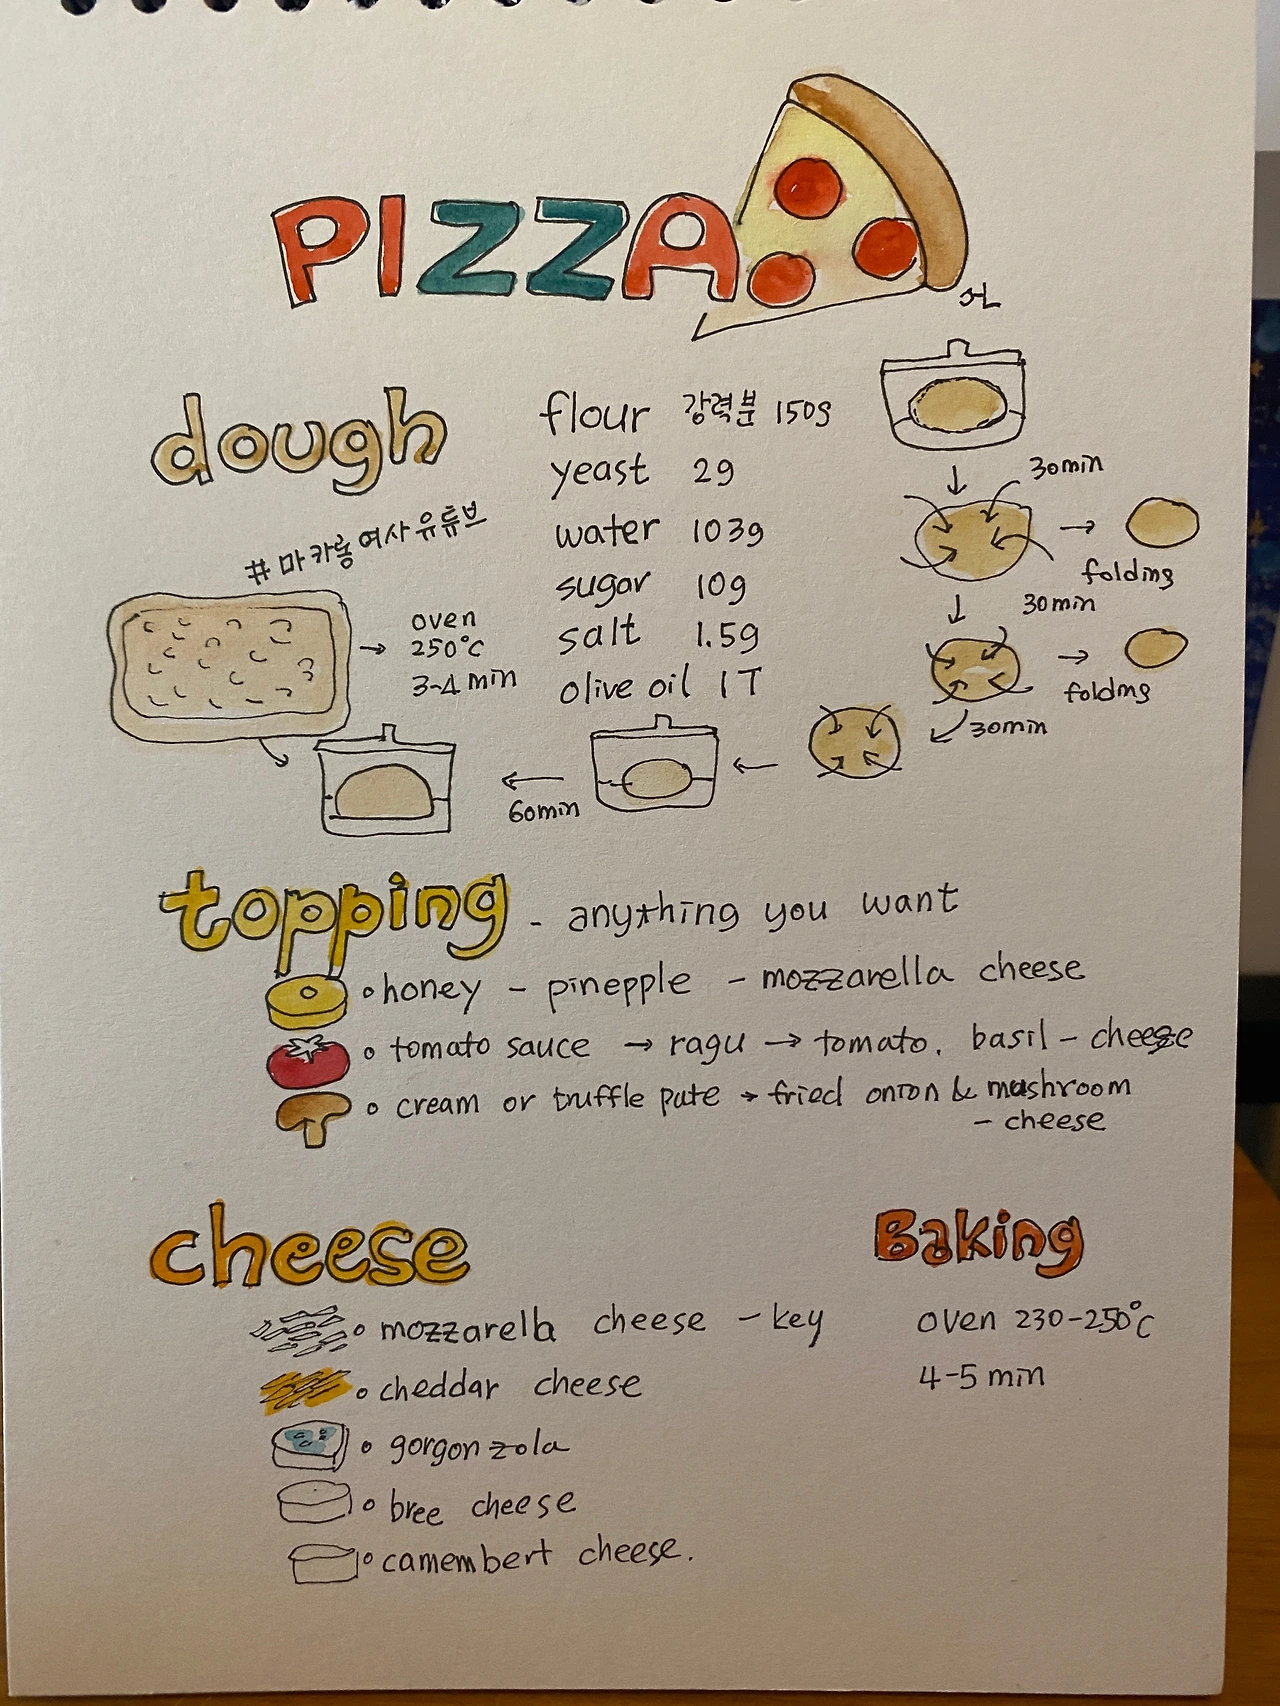 PIZZA
dough
flour 강력분 150g
yeast 2g
water 103g
sugar 10g
salt 1.5g
olive oil 1T
#마카롱여사유튜브
30min
folding
30min
folding
30min
60min
oven
250°C
3-4min
topping - anything you want
honey - pinepple - mozzarella cheese
tomato sauce → ragu → tomato. basil - cheese
cream or truffle pate → fried onion & mushroom
- cheese
cheese
mozzarella cheese - key
cheddar cheese
gorgonzola
bree cheese
camembert cheese.
Baking
oven 230-250°C
4-5min